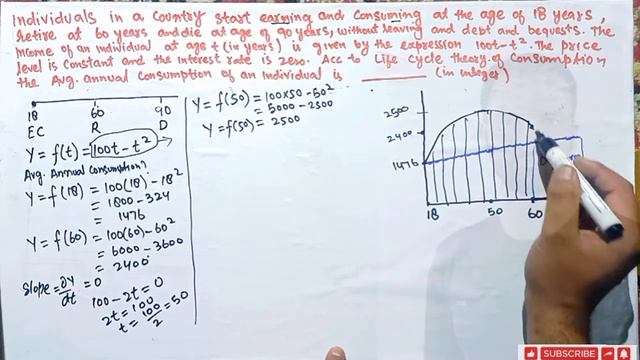 Individuals in a country start earning and consuming at the age of 18 years,
retire at 60 years and die at age of 90 years, without leaving and debt and bequests. The
income of an individual at age t (in years) is given by the expression 100t-t². The price
level is constant and the interest rate is zero. Acc to Life cycle theory of consumption,
the Avg. annual consumption of an individual is ________ (in integer)
18 60 90
EC R D
Y = f(t) = 100t - t²
Avg. Annual consumption?
Y = f(18) = 100(18) - 18²
= 1800 - 324
= 1476
Y = f(60) = 100(60) - 60²
= 6000 - 3600
= 2400
Slope = ∂Y/∂t = 0
100 - 2t = 0
2t = 100
t = 100/2 = 50
Y = f(50) = 100x50 - 50²
= 5000 - 2500
Y = f(50) = 2500
2500
2400
1476
18 50 60
LIKE SHARE SUBSCRIBE